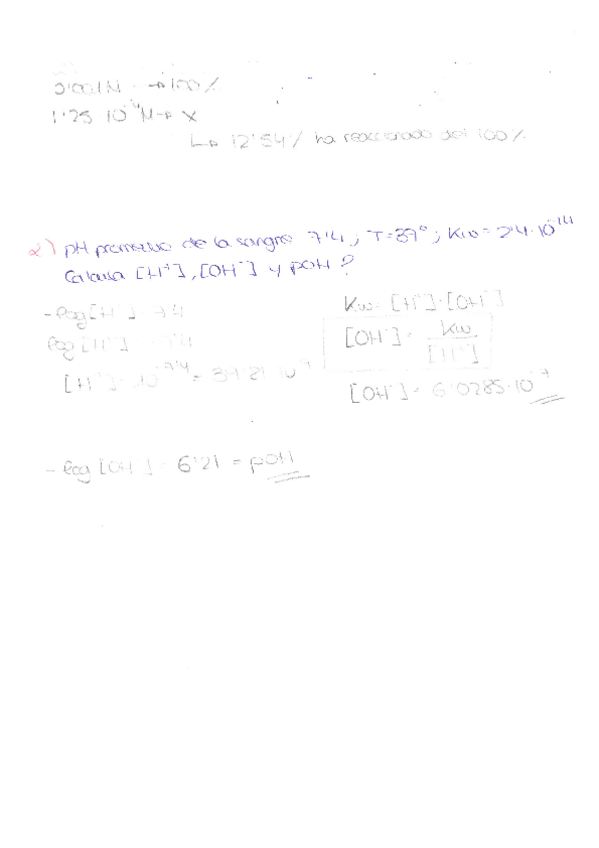 0'001M → 100%
1'25 10⁻⁴M → X
↳ 12'54% ha reaccionado del 100%
2) pH promedio de la sangre 7'4; T=37°; Kw = 2'4·10⁻¹⁴
Calcula [H⁺], [OH⁻] y pOH?
-log[H⁺] = 7'4
Kw = [H⁺]·[OH⁻]
log[H⁺] = -7'4
[OH⁻] = Kw / [H⁺]
[H⁺] = 10⁻⁷'⁴ =
[OH⁻] = 6'0285·10⁻⁷
-log [OH⁻] = 6'21 = pOH